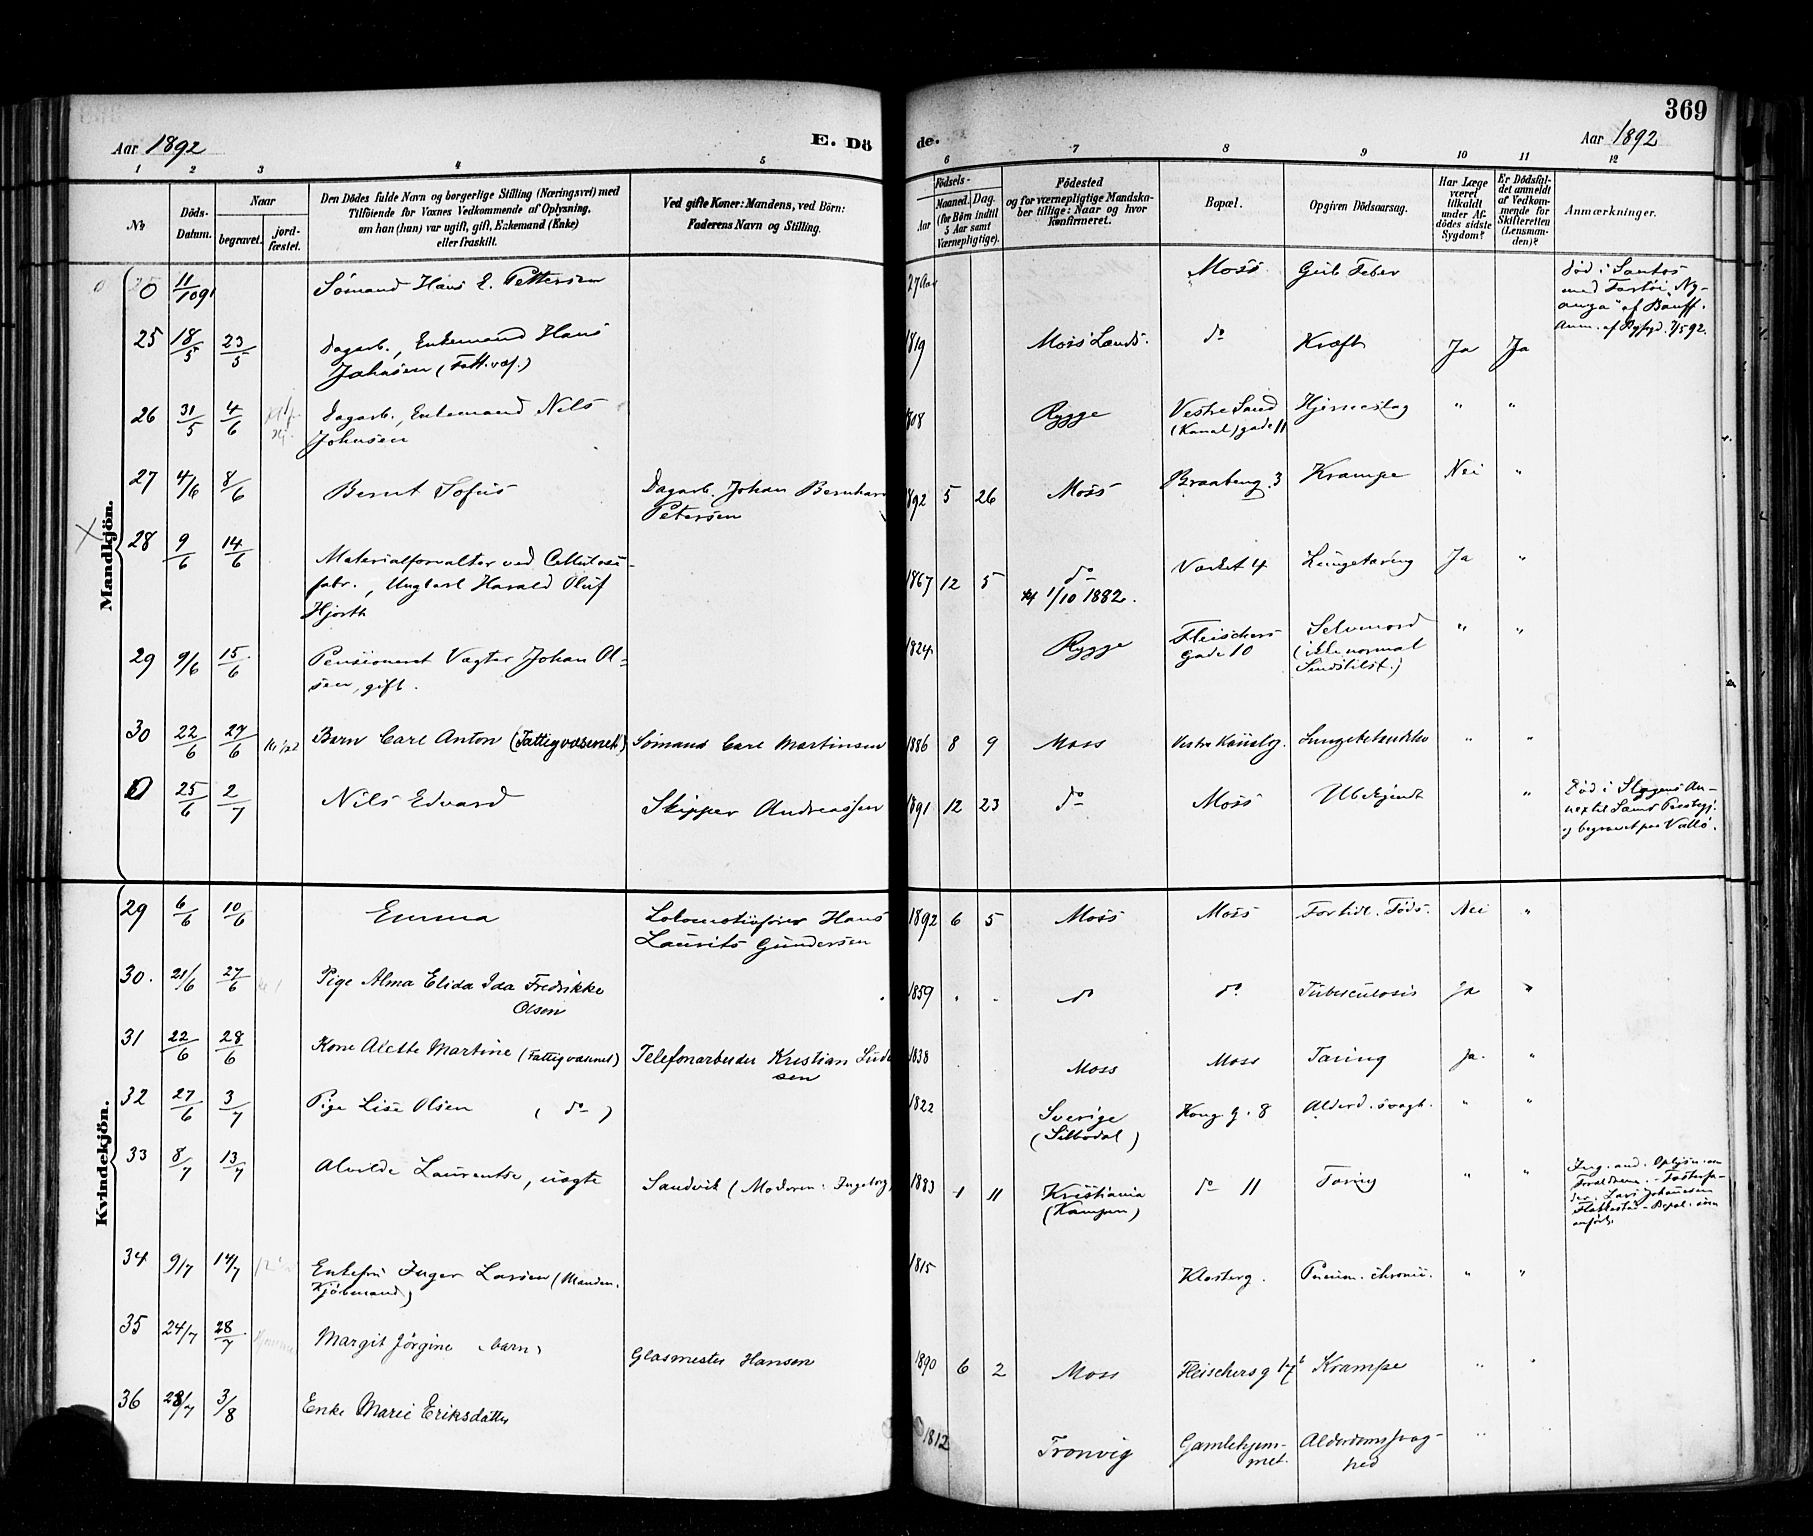 369
Aar 1892
E. Dö
de.
Aar 1892
1 2 3 4 5 6 7 8 9 10 11 12
No
Döds-Datum.
Naar
begravet.
jordfæstet.
Den Dödes fulde Navn og borgerlige Stilling (Næringsvei) med
Tilföiende for Voxnes Vedkommende af Oplysning,
om han (hun) var ugift, gift, Enkemand (Enke)
eller fraskilt.
Ved gifte Koner: Mandens, ved Börn:
Faderens Navn og Stilling.
Födsels-
Aar
Maaned. Dag.
(for Börn indtil
5 Aar samt
Værnepligtige).
Födested
og for værnepligtige Mandska-
ber tillige: Naar og hvor
konfirmeret.
Bopæl.
Opgiven Dödsaarsag.
Har Læge
været
tilkaldt
under Af-
dödes sidste
Sygdom?
Er Dödsfal-
det anmeldt
af Vedkom-
mende for
Skifteretten
(Lensman-
den)?
Anmærkninger.
Mandkjön.
0 11/10 91 Sömand Hans E. Pettersen 27 Aar Moss Gul Feber
Död i Santos
med Fartöi
af Banff.
25 18/5 23/5 Dagarb., Enkemand Hans
Johnsen (Fatt.væs.) 1819 Moss Lands. do Kræft Ja Ja
26 31/5 4/6 Dagarb., Enkemand Nils
Johnsen 1808 Rygge Vestre Sund
(Kanal) gade 11 Hjerneslag " "
27 4/6 8/6 Bernt Sofus Dagarb. Johan Bernhard
Petersen 1892 5 26 Moss Braateng. 3 Krampe Nei "
28 9/6 14/6 Materialforvalter ved Cellulose-
fabr., Ungkarl Harald Oluf
Hjorth 1867 12 5 do
1/10 1882. Værket 4 Lungetæring Ja "
29 9/6 15/6 Pensioneret Vægter Johan Ol-
sen, gift. 1824 Rygge Fleischers
gade 10 Selvmord
(ikke normal
Sindstilst.) " "
30 22/6 27/6 Barn Carl Anton (Fattigvæsenet) Sömand Carl Martinsen 1886 8 9 Moss Vestre Kanalg. Lungebetændelse " "
0 25/6 2/7 Nils Edvard Skipper Andreassen 1891 12 23 do Moss Ubekjendt "
Död i Slagens An-
nex til Sems Præstegj.
og begravet paa Vallö.
Kvindekjön.
29 6/6 10/6 Emma Lokomotivförer Hans
Laurits Gundersen 1892 6 5 Moss Moss For tidl. Föds. Nei "
30. 21/6 27/6 Pige Alma Elida Ida Fredrikke
Olsen 1859 do do Tuberculosis Ja "
31 22/6 28/6 Kone Alette Martine (Fattigvæsenet) Telefonarbeider Kristian
sen 1838 Moss Moss Tæring Ja. "
32 27/6 3/7 Pige Lise Olsen (do) 1822 Sverige
(Silbodal) Kong. g. 8 Alderd. svagh. " "
33 8/7 13/7 Alvilde Laurentse, uægte Sandvik (Moderen: Ingeborg) 1883 1 11 Kristiania
(Kampen) do 11 Tæring " "
Ing. and. Oplysn. om
Forældrene. - Fosterfa-
der. Lars Johannesen
- Bopæl. som
anfört.
34 9/7 14/7 Enkefru Inger Larsen (Manden.
Kjöbmand) 1815 Klosterg. Pneum. chronic. " "
35 24/7 28/7 Margit Jörgine (barn) Glasmester Hansen 1890 6 2 Moss Fleischersg 17 b Krampe " "
36 28/7 3/8 Enke Marie Eriksdatter 1812 Tronvig Gamlehjem-
met. Alderdomssvag-
hed "